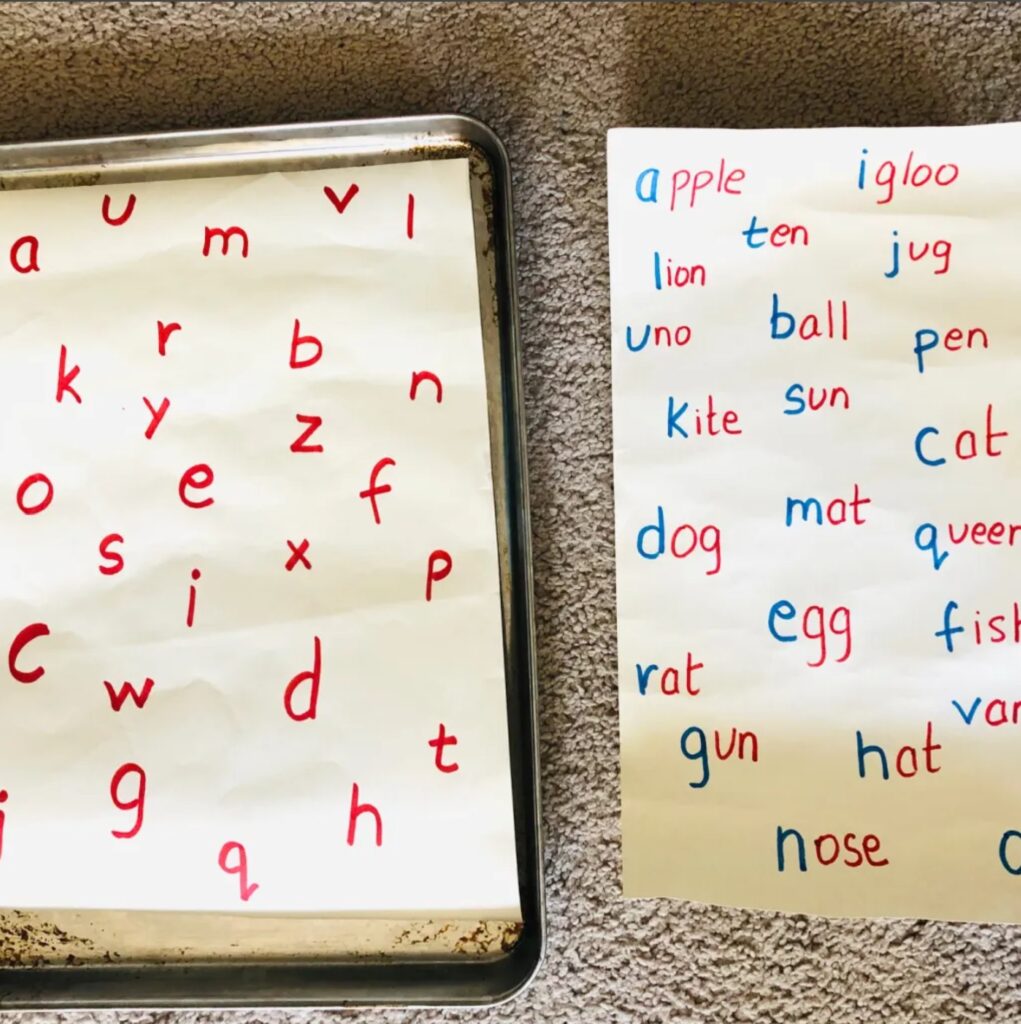 u v l
a m
r b
k y n
z
o e f
s x p
i
c w d
t
g h
j
q
apple igloo
ten jug
lion
uno ball pen
kite sun
cat
dog mat
egg
rat
gun hat
nose